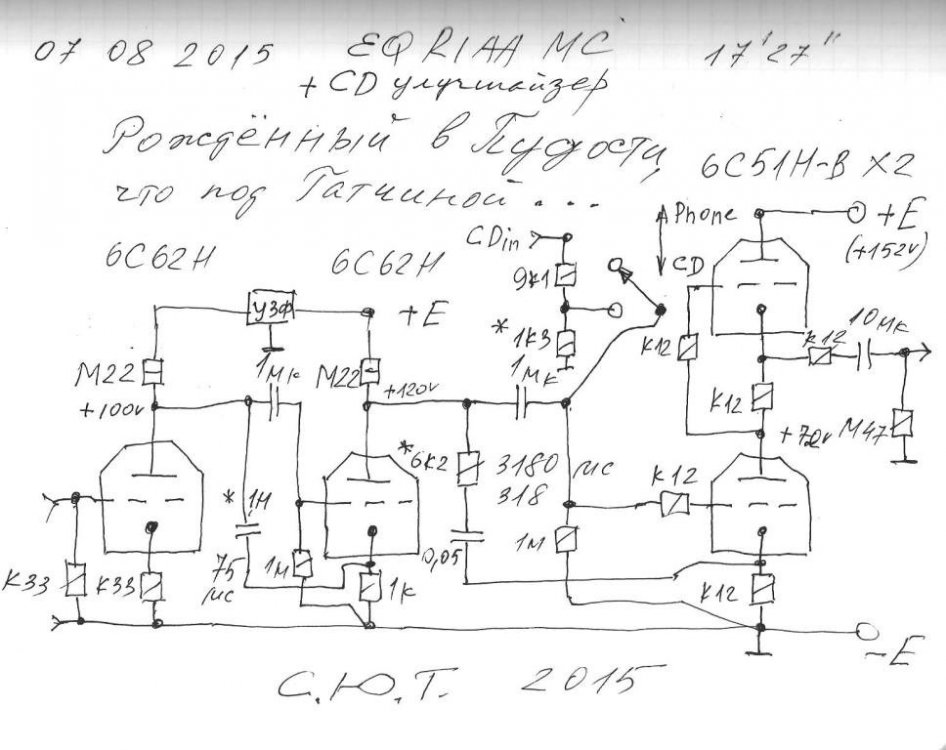 07 08 2015 EQRIAA MC 17'27"
+ CD улучшайзер
Рождённый в Пудости,
что под Гатчиной ...
6С51Н-В X2
6С62Н
6С62Н
CDin
Phone
CD
+E
(+152v)
9К1
*1К3
УЗФ
+E
М22
+100v
1мк
М22
+120v
1мк
К12
К12
К12
10мк
+72v
М47
*6К2
3180 мс
318
*1Н
75 мс
1М
0,05
1М
К12
К33
К33
1К
К12
-E
С.Ю.Т. 2015